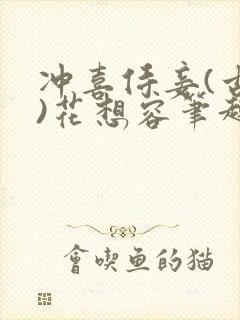 冲喜侍妾(古
)花想容笔趣
會喫鱼的猫